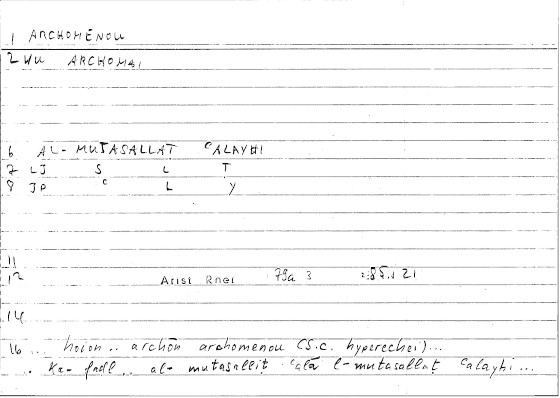 1 ARCHOMÉNOU
2 WU ARCHOMAI
6 AL-MUTASALLAT ᶜALAYHI
7 LJ S L T
8 JP ᶜ L Y
11
12 Arist Rhet 79a 3 :85.1 21
14
16 .. hoion .. archōn archomenou (s.c. hyperechei)...
. Ka- fadl .. al- mutasallit ᶜalā l-mutasallat ᶜalayhi ...